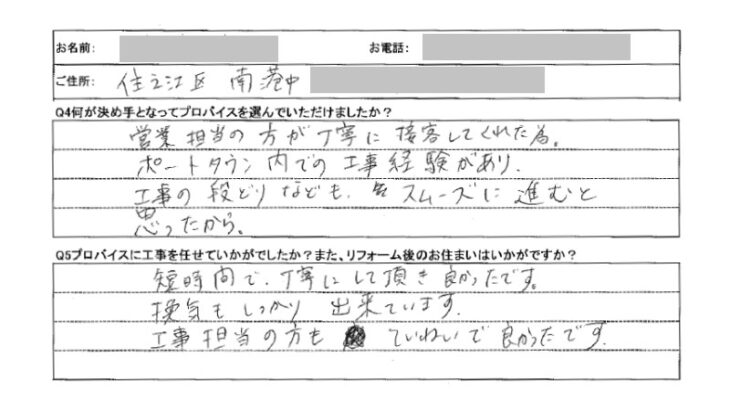 お名前: お電話:
ご住所: 住之江区 南港中
Q4何が決め手となってプロバイスを選んでいただけましたか?
営業担当の方が丁寧に接客してくれた為。
ポートタウン内での工事経験があり、
工事の段どりなども、スムーズに進むと
思ったから。
Q5プロバイスに工事を任せていかがでしたか?また、リフォーム後のお住まいはいかがですか?
短時間で、丁寧にして頂き良かったです。
換気もしっかり出来ています。
工事担当の方も ていねいで良かったです。